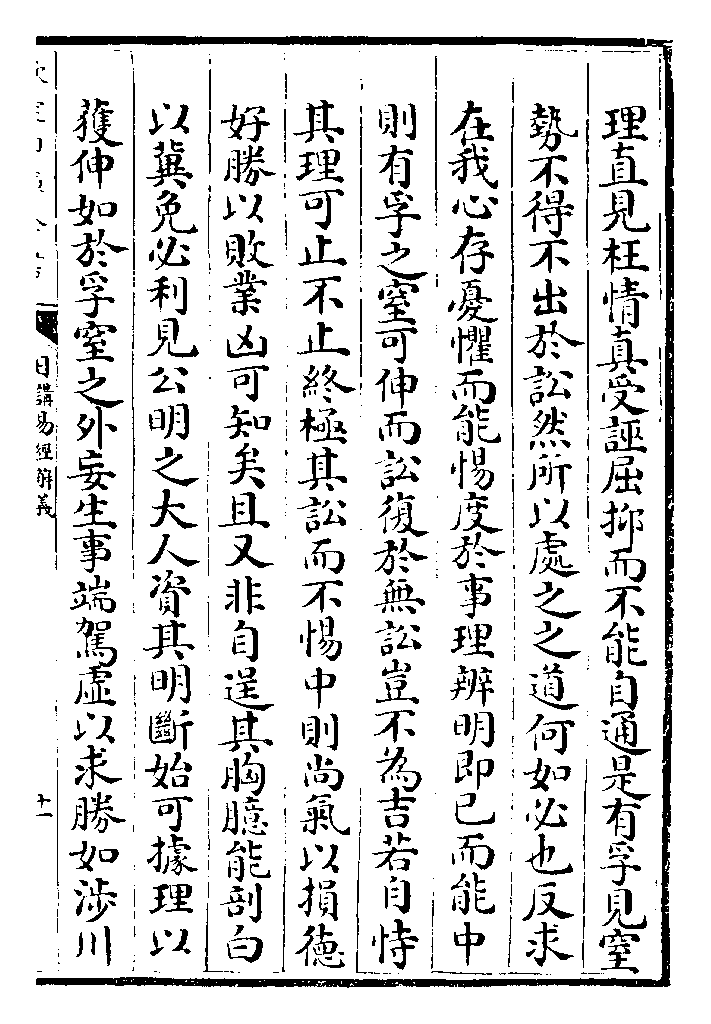 理直見枉情真受誣屈抑而不能自通是有孚見窒
勢不得不出於訟然所以處之之道何如必也反求
在我心存憂懼而能惕度於事理辨明即已而能中
則有孚之窒可伸而訟復於無訟豈不為吉若自恃
其理可止不止終極其訟而不惕中則尚氣以損德
好勝以敗業凶可知矣且又非自逞其胸臆能剖白
以冀免必利見公明之大人資其明斷始可據理以
獲伸如於孚窒之外妄生事端駕虛以求勝如涉川
日講易經解義
十一